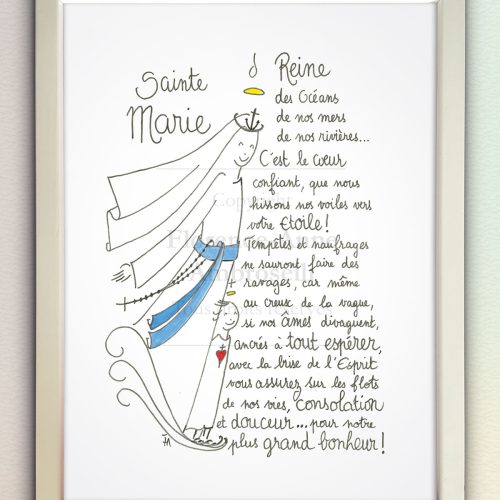 Sainte
Marie
ô Reine
des Océans
de nos mers
de nos rivières...
C'est le cœur
confiant, que nous
hissons nos voiles vers
votre Etoile !
Tempêtes et naufrages
ne sauront faire des
ravages, car même
au creux de la vague,
si nos âmes divaguent,
ancrés à tout espérer,
avec la brise de l'Esprit
vous assurez sur les flots
de nos vies, consolation
et douceur... pour notre
plus grand bonheur !
Copyright
Florence Anne
Ambroselli
Tous droits réservés